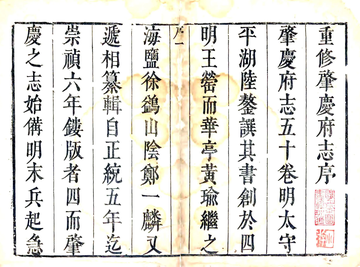 重修肇慶府志序
肇慶府志五十卷明太守
平湖陸鏊譔其書創於四
明王䇾而華亭黃瑜繼之
海鹽徐鷁山陰鄭一麟又
遞相纂輯自正統五年迄
崇禎六年鏤版者四而肇
慶之志始備明末兵起急
序一